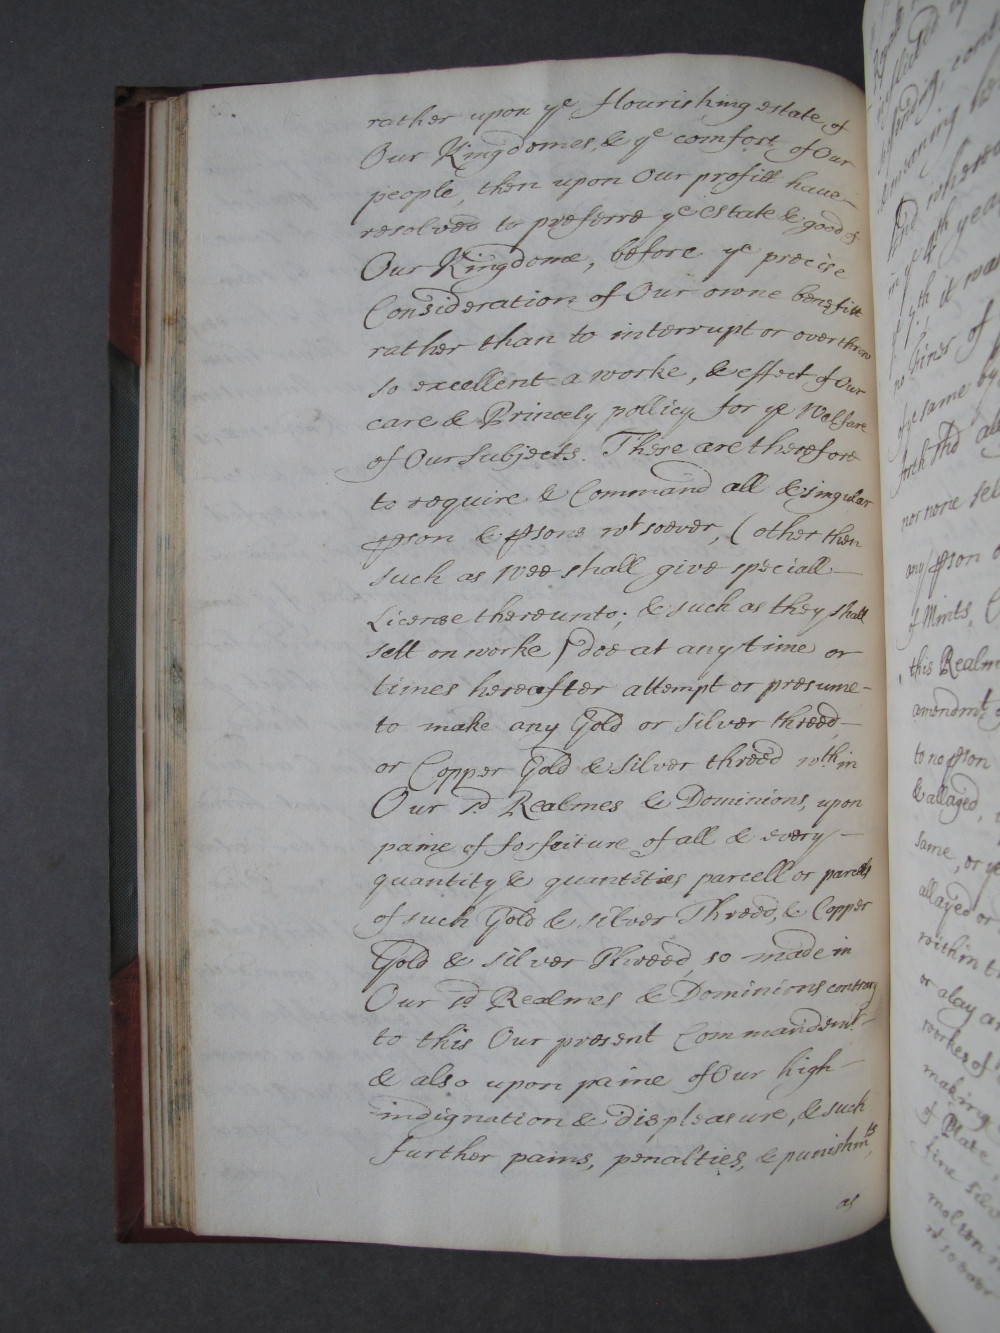 rather upon ye flourishing estate of
Our Kingdomes, & ye comfort of Our
people, then upon Our profitt have
resolved to preferre ye Estate & good of
Our Kingdome, before ye precise
Consideration of Our owne benefitt
rather than to interrupt or overthrow
so excellent a worke, & effect of Our
care & Princely pollicy for ye Welfare
of Our Subjects. These are therefore
to require & Command all & singular
pson & psons wt soever, (other then
such as Wee shall give speciall
License thereunto; & such as they shall
sett on worke) doe at any time or
times hereafter attempt or presume
to make any Gold or Silver threed
or Copper Gold & Silver threed wth in
Our sd Realmes & Dominions, upon
paine of forfeiture of all & every
quantity & quantities parcell or parcells
of such Gold & Silver Threed, & Copper
Gold & Silver Threed so made in
Our sd Realmes & Dominions contrary
to this Our present Commandemt
& also upon paine of Our high
indignation & displeasure, & such
further pains, penalties, & punishmts,
as
inflicted
defending, cont
And wherea
in ye 4th year
it was
no fines of
of ye same by
nor none sell
any pson
of Mints,
this Realm
amendmt
to no pson
& allayed,
same, or ye
allayed or
within t
or alay a
workes of
making
of Plate
fine silv